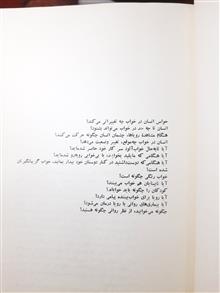 حواس انسان در خواب چه تغییراتی می‌کند؟
انسان تا چه حد در خواب می‌تواند بشنود؟
هنگام مشاهدهٔ رویاها، چشمان انسان چگونه حرکت می‌کند؟
انسان در خواب چه‌مواقع، تغییر وضعیت می‌دهد؟
آیا تابحال خواب‌آلود سر کار خود حاضر شده‌اید؟
آیا هنگامی که مایلید بخوابید، با بی‌خوابی روبرو شده‌اید؟
آیا هنگامی که دوست‌داشتید در کنار دوستان خود بیدار بمانید، خواب گریبانگیرتان
شده است؟
خواب رنگی چگونه است؟
آیا نابینایان هم خواب می‌بینند؟
کودکان را چگونه باید خواباند؟
آیا رویا برای خواب‌بیننده پیامی دارد؟
آیا بیماری‌های روانی با رویا درمان می‌شود؟
چگونه می‌خوابید، از نظر روانی چگونه هستید؟